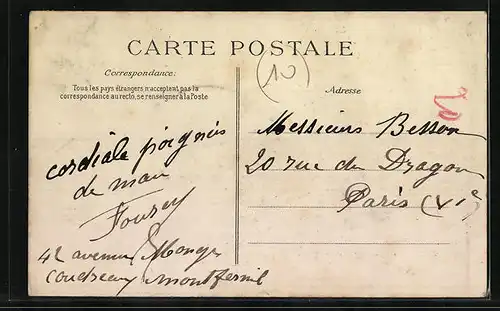 CARTE POSTALE
(10)
Correspondance:
Tous les pays étrangers n'acceptent pas la
correspondance au recto, se renseigner à la Poste
cordiale poignée
de main
42 avenue Monge
Coudreau Montfermeil
Adresse
Messieurs Besson
20 rue du Dragon
Paris (VIe)